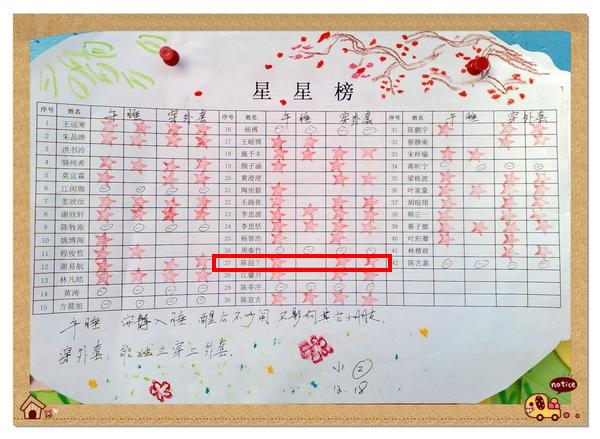 星星榜
序号 姓名 午睡 穿外套 序号 姓名 午睡 穿外套 序号 姓名 午睡 穿外套
1 王远寒 16 杨博 31 陈鹏宇
2 朱品晔 17 王 32 蔡静南
3 洪书泠 18 施予丰 33 宋梓瑜
4 骆纯希 19 颜子涵 34 蒋昕宁
5 莫宜霖 20 黄澄澄 35 梁栋波
6 江闵珈 21 陶俊毅 36 叶家豪
7 姜欣妆 22 毛路依 37 胡绽翊
8 谢欣轩 23 李思源 38 韩正一
9 陈牧原 24 李思恬 39 章子旗
10 姚博闻 25 杨智浩 40 叶珩骞
11 程俊哲 26 周泰竹 41 林稽政
12 谢易航 27 陈喆丫 42 陈艺嘉
13 林凡皓 28 江馨月
14 黄涛 29 陈亭序
15 方晨旭 30 陈宜吉
午睡:安静入睡,醒后不吵闹,不影响其它小朋友.
穿外套:能独立穿上外套.
小②
12.18
notice